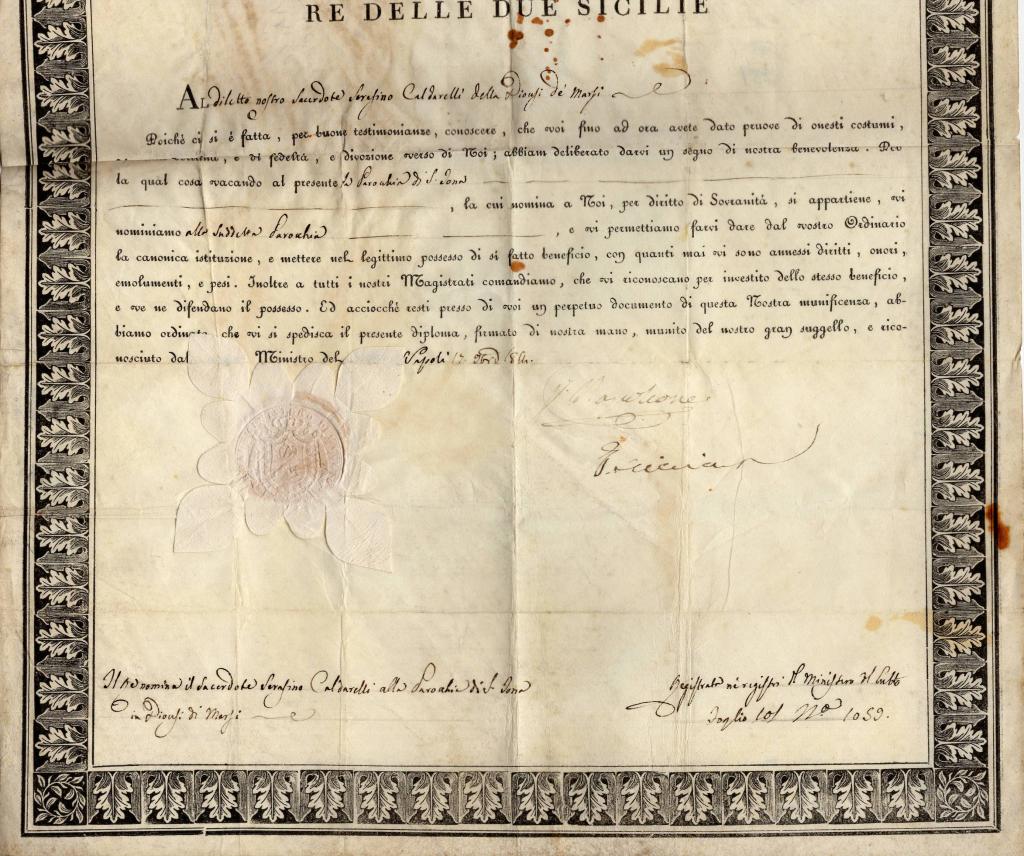 RE DELLE DUE SICILIE
AL diletto nostro Sacerdote Serafino Caldarelli della Diocesi de' Marsi
Poichè ci si è fatta, per buone testimonianze, conoscere, che voi fino ad ora avete dato pruove di onesti costumi,
e di fedeltà, e divozione verso di Noi; abbiam deliberato darvi un segno di nostra benevolenza. Per
la qual cosa vacando al presente la Parochia di S. Iona
, la cui nomina a Noi, per diritto di Sovranità, si appartiene, vi
nominiamo alla suddetta Parochia , e vi permettiamo farvi dare dal vostro Ordinario
la canonica istituzione, e mettere nel legittimo possesso di sì fatto beneficio, con quanti mai vi sono annessi diritti, onori,
emolumenti, e pesi. Inoltre a tutti i nostri Magistrati comandiamo, che vi riconoscano per investito dello stesso beneficio,
e ve ne difendano il possesso. Ed acciocchè resti presso di voi un perpetuo documento di questa Nostra munificenza, ab-
biamo ordinato che vi si spedisca il presente diploma, firmato di nostra mano, munito del nostro gran suggello, e rico-
nosciuto dal Ministro del Napoli
Il Re nomina il Sacerdote Serafino Caldarelli alla Parochia di S. Iona
in Diocesi di Marsi
Registrato ne' registri del Ministero del Culto
Foglio 101 N.º 1059.